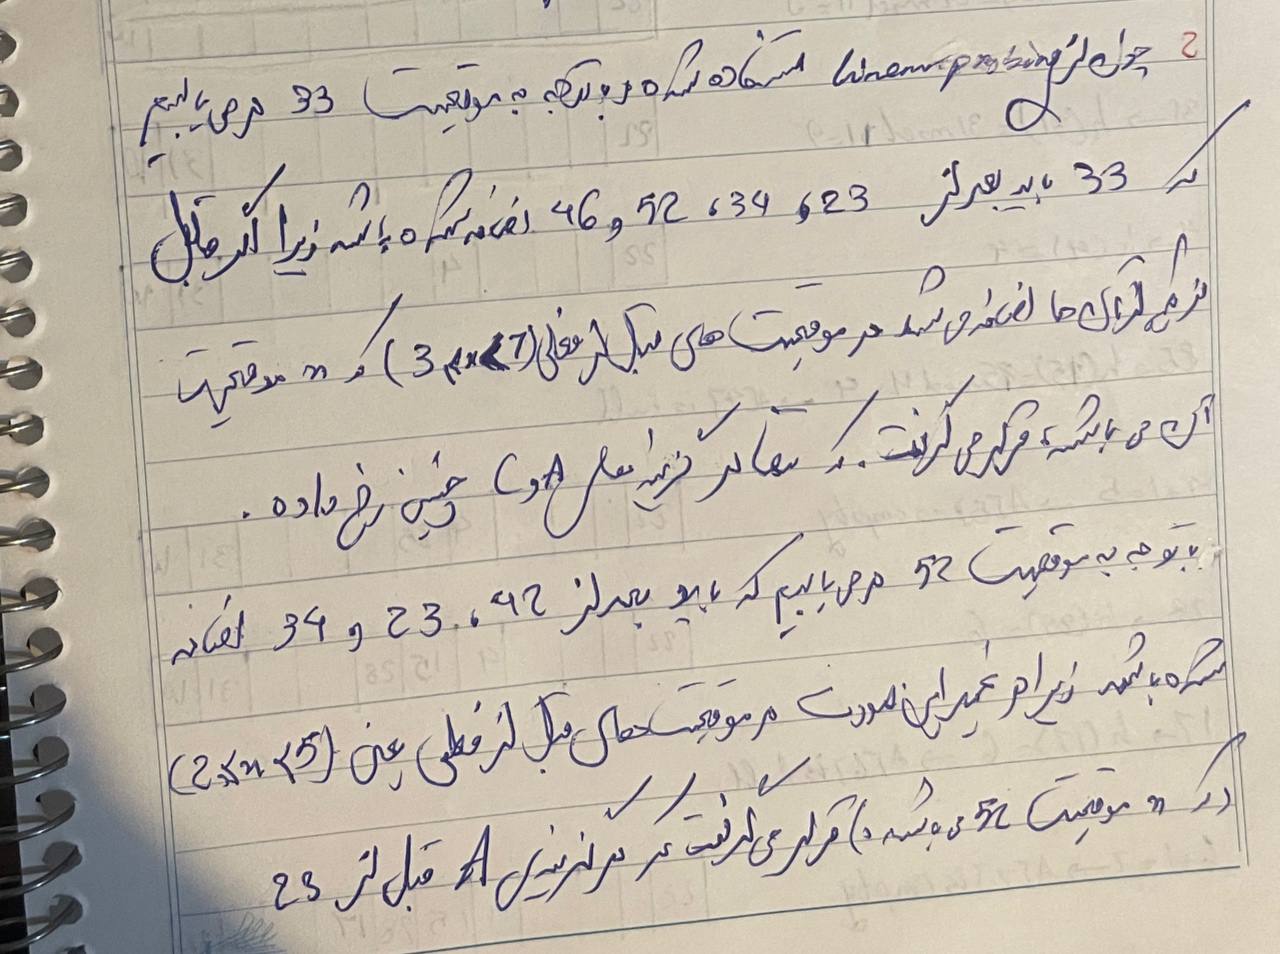 2 چون از Linear probing استفاده شده و با توجه به موقعیت 33 در می‌یابیم
که 33 باید بعد از 23، 34، 52 و 46 اضافه شده باشد زیرا اگر ما قبل
از هر کدام از آن ها اضافه می شد در موقعیت های قبل از فعلی (3≤x<7) که x موقعیت
آن می باشد، قرار می گرفت. که تنها در گزینه های A و C چنین رخ داده.
با توجه به موقعیت 52 در می‌یابیم که باید بعد از 42، 23 و 34 اضافه
شده باشد زیرا در غیر این صورت در موقعیت های قبل از فعلی یعنی (2≤x<5)
(که x موقعیت 52 می باشد) قرار می گرفت که در گزینه A قبل از 23